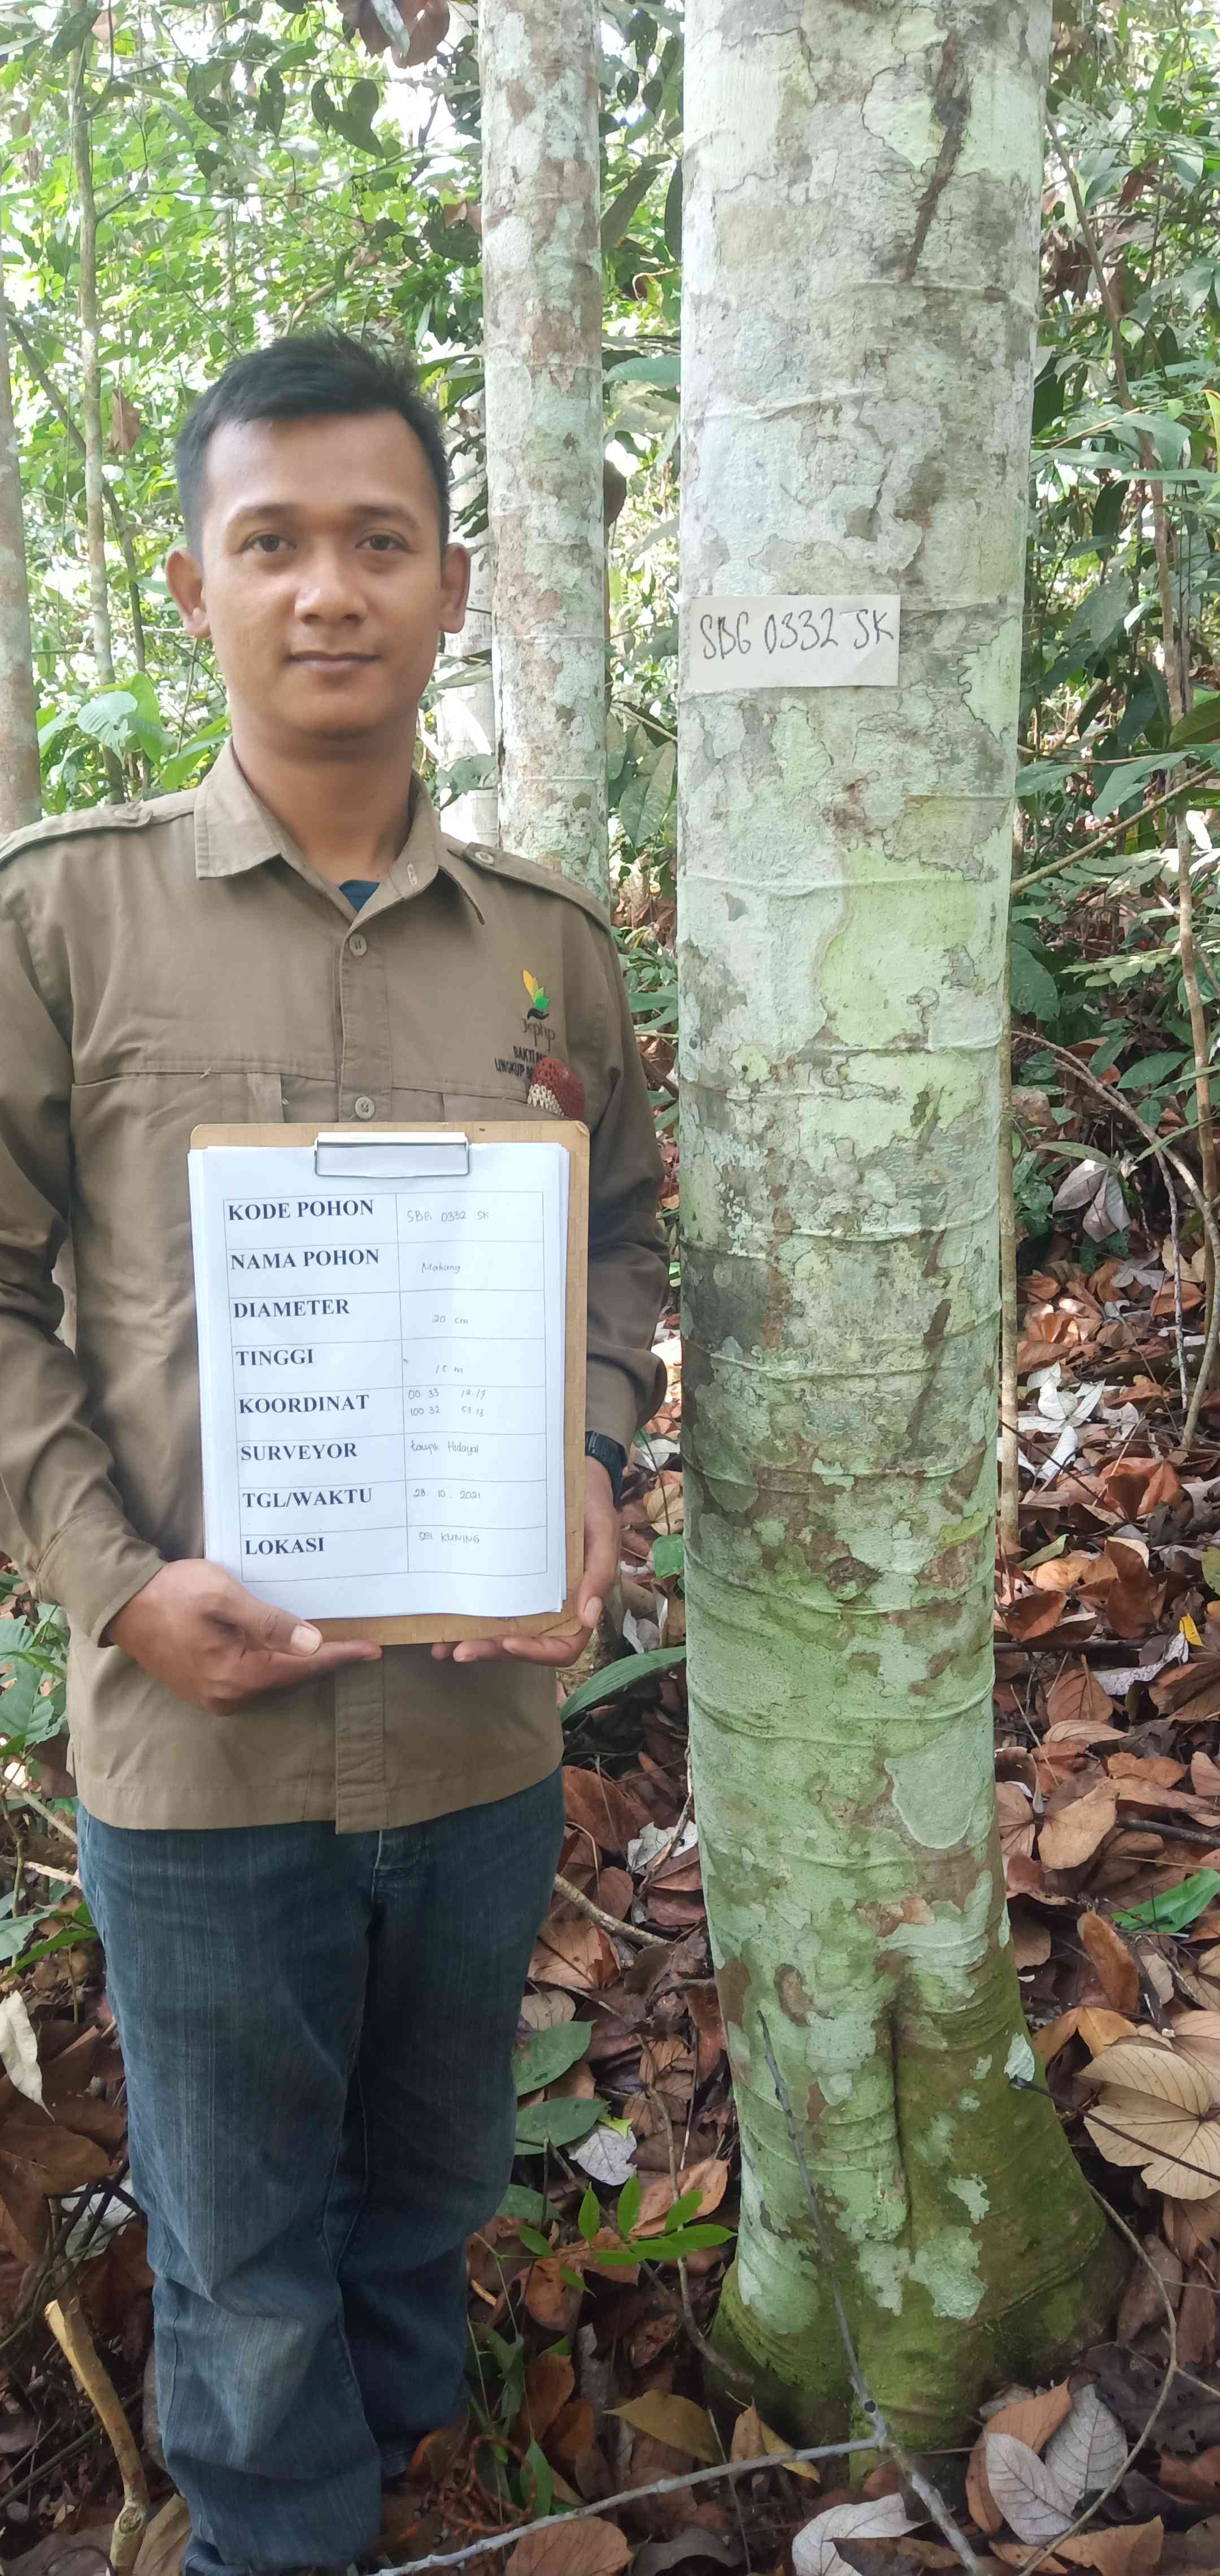 SBG 0332 SK
KPHP
BAKTI
LINGKUP
KODE POHON SBG 0332 SK
NAMA POHON Mahang
DIAMETER 20 cm
TINGGI 15 m
KOORDINAT 00 33 12.17
100 32 57.13
SURVEYOR Taufik Hidayat
TGL/WAKTU 28. 10. 2021
LOKASI SEI KUNING